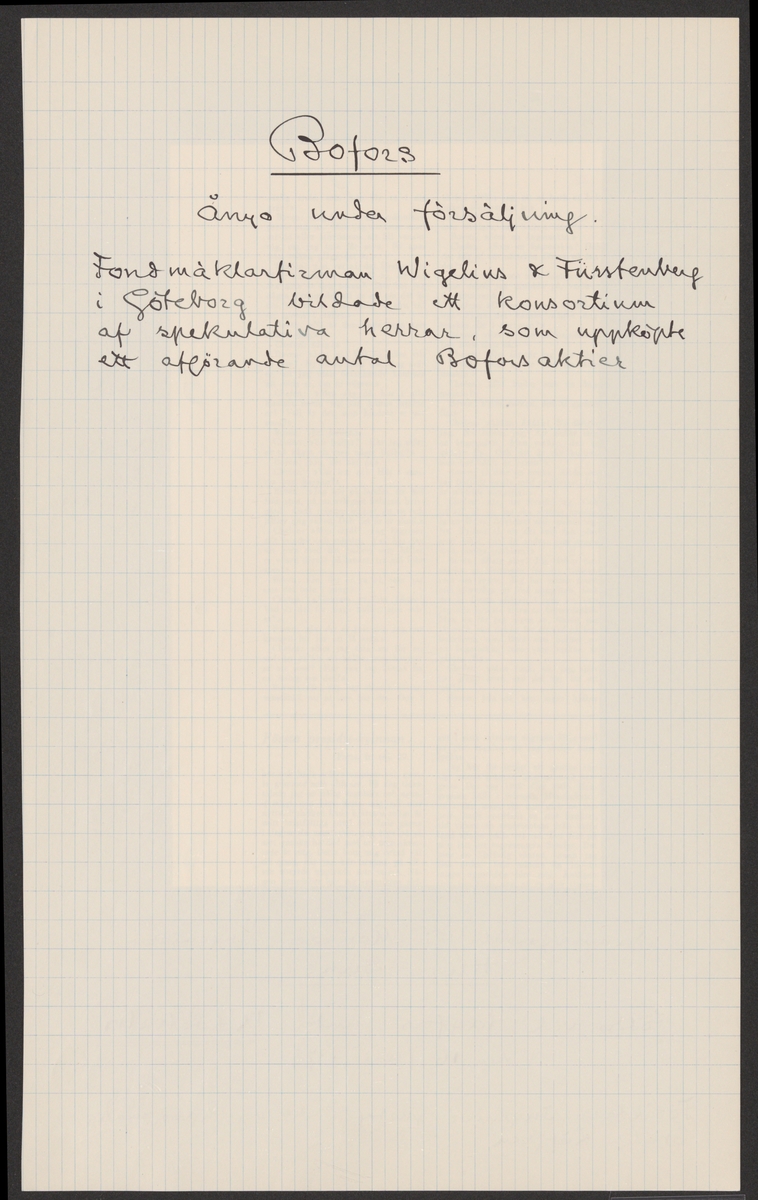 Bofors
Ånyo under försäljning.
Fondmäklarfirman Wigelius & Fürstenberg
i Göteborg bildade ett konsortium
af spekulativa herrar, som uppköpte
ett afgörande antal Boforsaktier